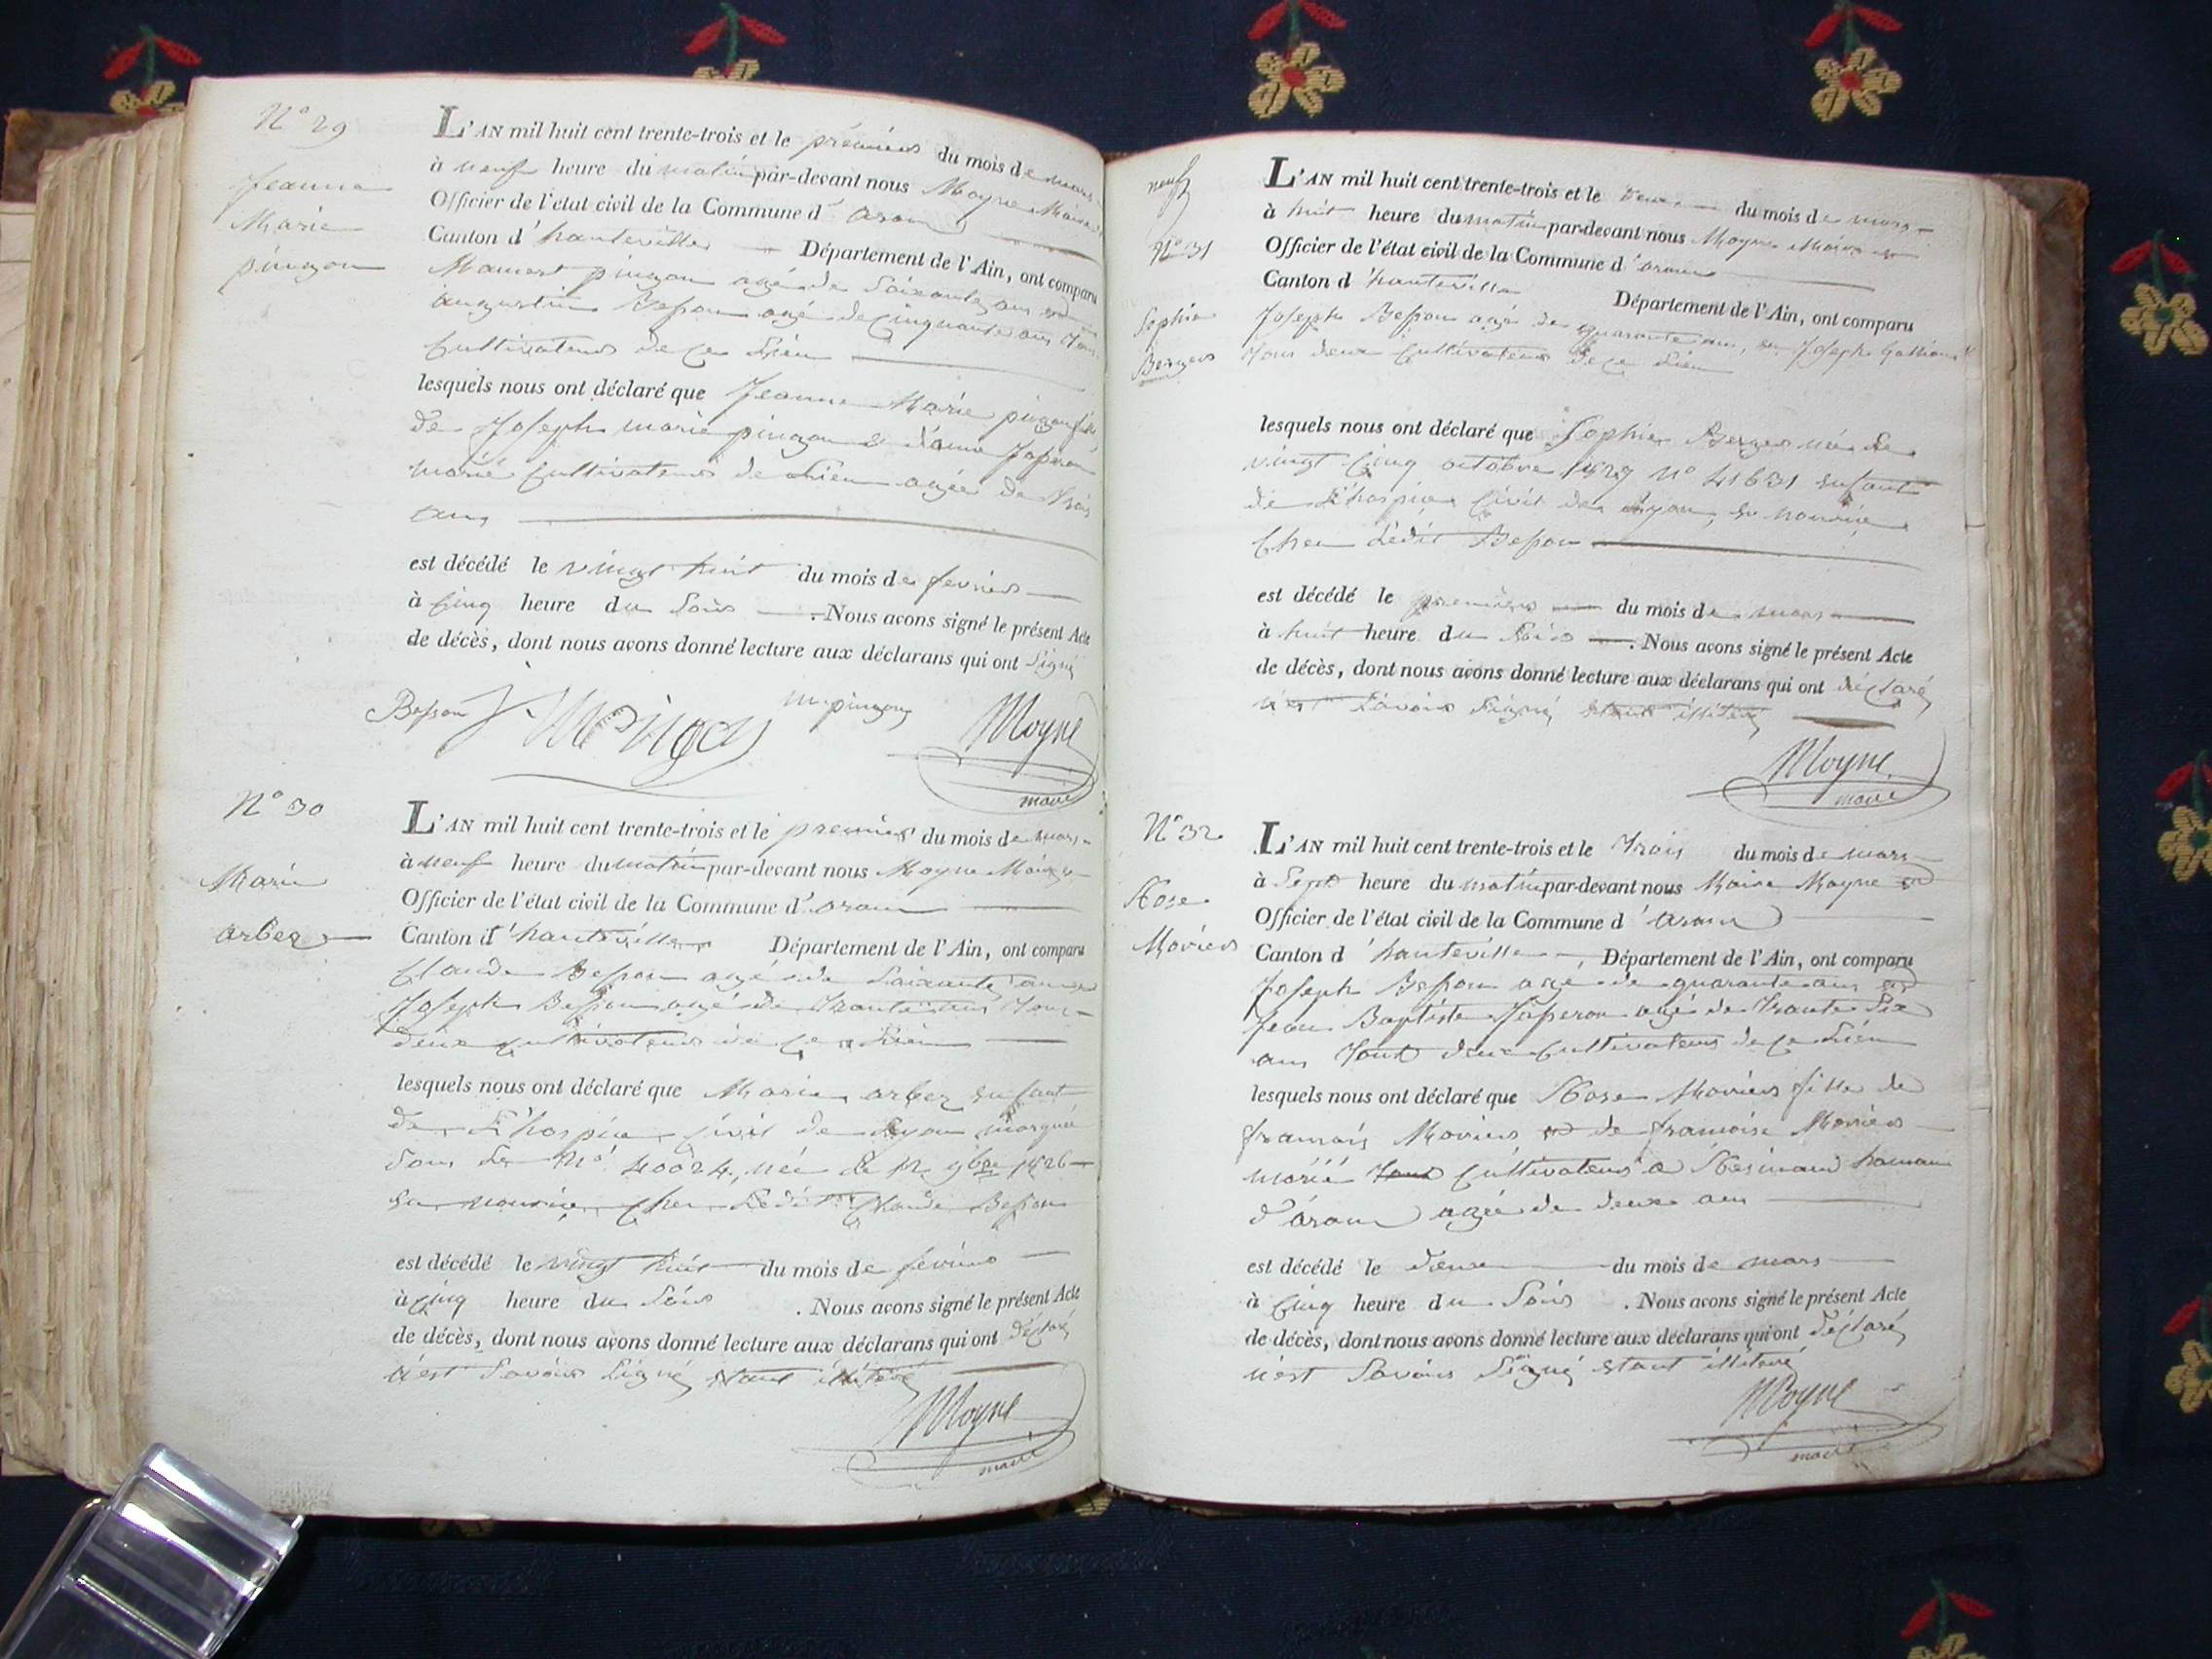 N° 29
Jeanne
Marie
pingon
L'AN mil huit cent trente-trois et le premiers du mois de mars
à neuf heure du matin par-devant nous Moyne Maire
Officier de l'état civil de la Commune d' aran
Canton d'hauteville Département de l'Ain, ont comparu
Mamert pingon agé de Soixante ans et
augustin Besson agé de Cinquante ans tous
Cultivateurs de Ce Lieu
lesquels nous ont déclaré que Jeanne Marie pingon fille
de Joseph marie pingon & d'anne Japeron
marié Cultivateurs de Lieu agée de trois
ans
est décédé le vingt huit du mois de fevrier
à Cinq heure du Soir . Nous avons signé le présent Acte
de décès, dont nous avons donné lecture aux déclarans qui ont Signé
Besson mpingon Moyne
maire
N° 30
Marie
arbez
L'AN mil huit cent trente-trois et le premier du mois de mars
à neuf heure du matin par-devant nous Moyne Maire
Officier de l'état civil de la Commune d'aran
Canton d'hauteville Département de l'Ain, ont comparu
Claude Besson agé de Soixante ans
Joseph Besson agé de trante ans tous
deux Cultivateurs de Ce Lieu
lesquels nous ont déclaré que Marie arbez enfant
de L'hospice Civil de Lyon marqué
Sous Le N° 40024, née le 12 9bre 1826
en nourrice Chez Ledit Claude Besson
est décédé le vingt huit du mois de février
à Cinq heure du Soir . Nous avons signé le présent Acte
de décès, dont nous avons donné lecture aux déclarans qui ont déclaré
n'est Savoir Signé étant illiteré
Moyne
maire
neuf
N° 31
Sophie
Berger
L'AN mil huit cent trente-trois et le deux du mois de mars
à huit heure du matin par-devant nous Moyne Maire et
Officier de l'état civil de la Commune d'aran
Canton d'hauteville Département de l'Ain, ont comparu
Joseph Besson agé de quarante ans, et Joseph
tous deux Cultivateurs de Ce Lieu
lesquels nous ont déclaré que Sophie Berger née Le
vingt Cinq octobre N° 41631 enfant
de L'hospice Civil de Lyon, en nourrice
Chez Ledit Besson
est décédé le premiers du mois de mars
à huit heure du Soir . Nous avons signé le présent Acte
de décès, dont nous avons donné lecture aux déclarans qui ont déclaré
n'est Savoir Signé étant illiteré
Moyne
maire
N° 32
Rose
Moriers
L'AN mil huit cent trente-trois et le trois du mois de mars
à Sept heure du matin par-devant nous Maire Moyne et
Officier de l'état civil de la Commune d'aran
Canton d'hauteville Département de l'Ain, ont comparu
Joseph Besson agé de quarante ans et
Jean Baptiste Japeron agé de trante Six
ans tout deux Cultivateurs de Ce Lieu
lesquels nous ont déclaré que Rose Moriers fille de
francois Moriers et de francoise Moriers
marié tous Cultivateurs a Resinand hamau
d'aran agée de deux ans
est décédé le deux du mois de mars
à Cinq heure du Soir . Nous avons signé le présent Acte
de décès, dont nous avons donné lecture aux déclarans qui ont déclaré
n'est Savoir Signé étant illiteré
Moyne
maire